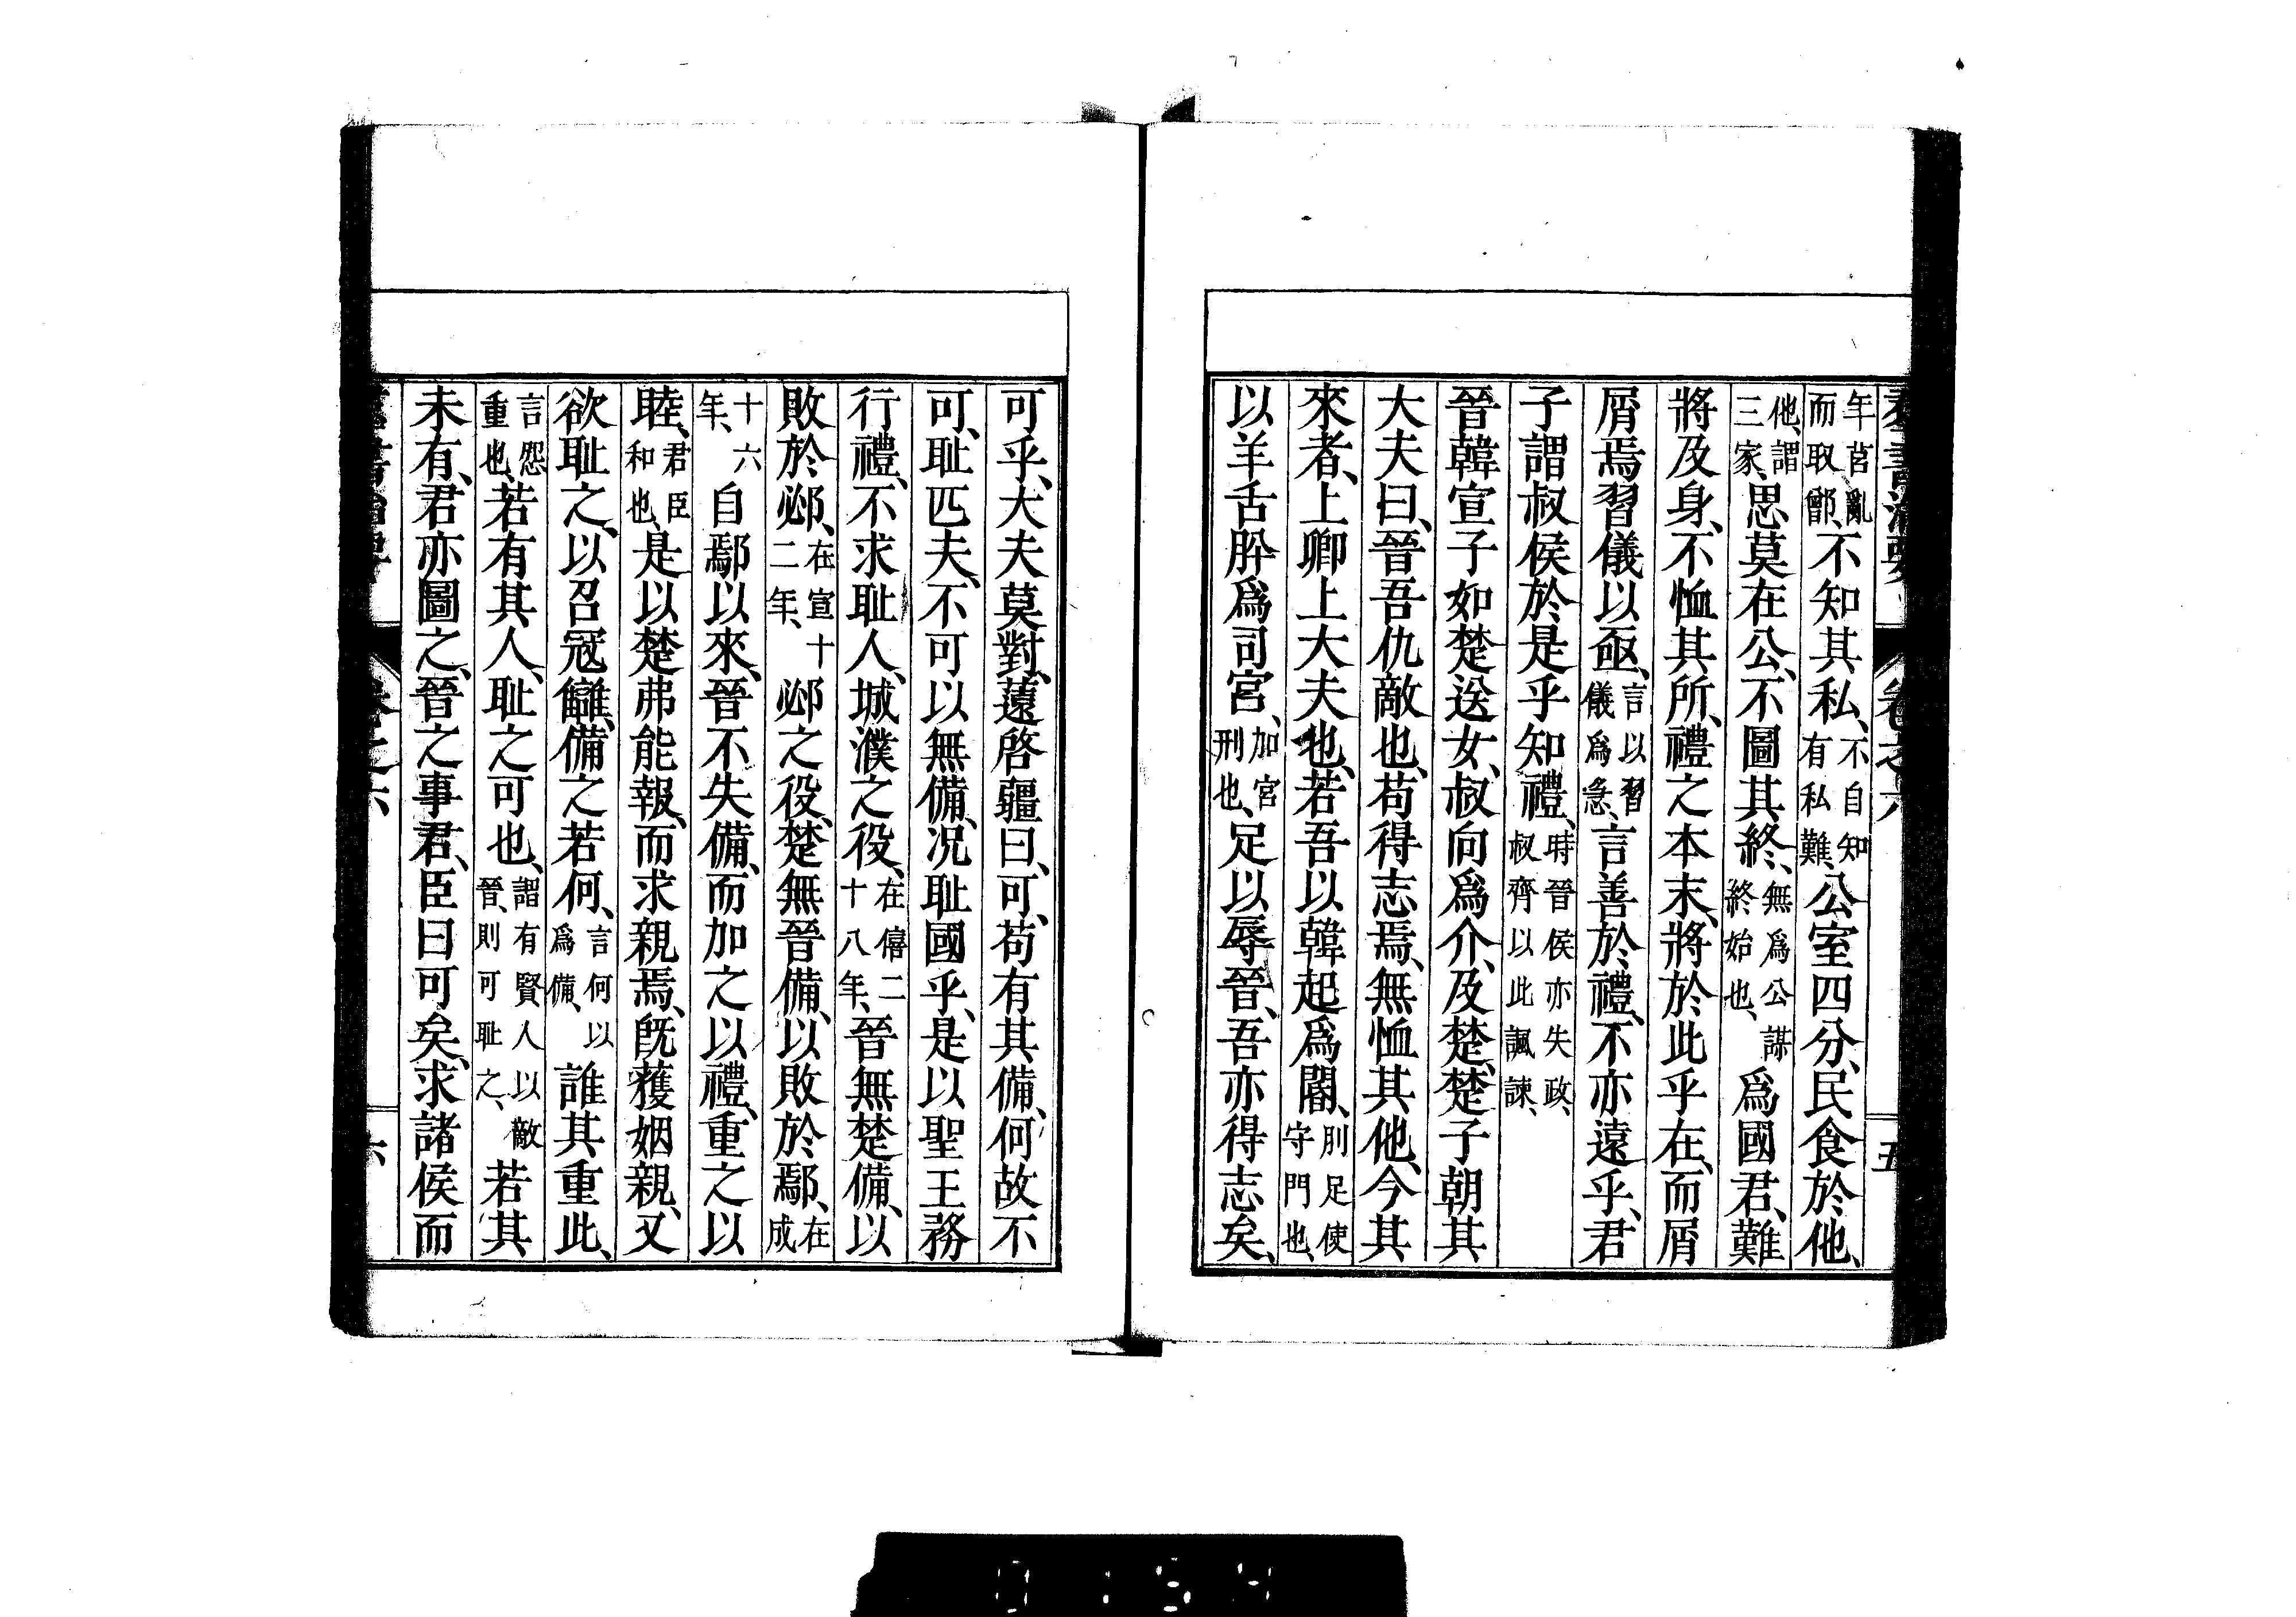 群書治要 卷之六 五
年莒亂而取鄫、不知其私、不自知有私難、公室四分、民食於他、
他、謂三家、思莫在公、不圖其終、無爲公謀終始也、爲國君、難
將及身、不恤其所、禮之本末、將於此乎在、而屑
屑焉習儀以亟、言以習儀爲急、言善於禮、不亦遠乎、君
子謂叔侯於是乎知禮、時晉侯亦失政、叔齊以此諷諫、
晉韓宣子如楚送女、叔向爲介、及楚、楚子朝其
大夫曰、晉吾仇敵也、苟得志焉、無恤其他、今其
來者、上卿上大夫也、若吾以韓起爲閽、刖足使守門也、
以羊舌肸爲司宮、加宮刑也、足以辱晉、吾亦得志矣、
可乎、大夫莫對、薳啓疆曰、可、苟有其備、何故不
可、耻匹夫、不可以無備、况耻國乎、是以聖王務
行禮、不求耻人、城濮之役、在僖二十八年、晉無楚備、以
敗於邲、在宣十二年、邲之役、楚無晉備、以敗於鄢、在成
十六年、自鄢以來、晉不失備、而加之以禮、重之以
睦、君臣和也、是以楚弗能報、而求親焉、旣獲姻親、又
欲耻之、以召寇讎、備之若何、言何以爲備、誰其重此、
言怨重也、若有其人、耻之可也、謂有賢人以敵晉、則可耻之、若其
未有、君亦圖之、晉之事君、臣曰可矣、求諸侯而
群書治要 卷之六 六